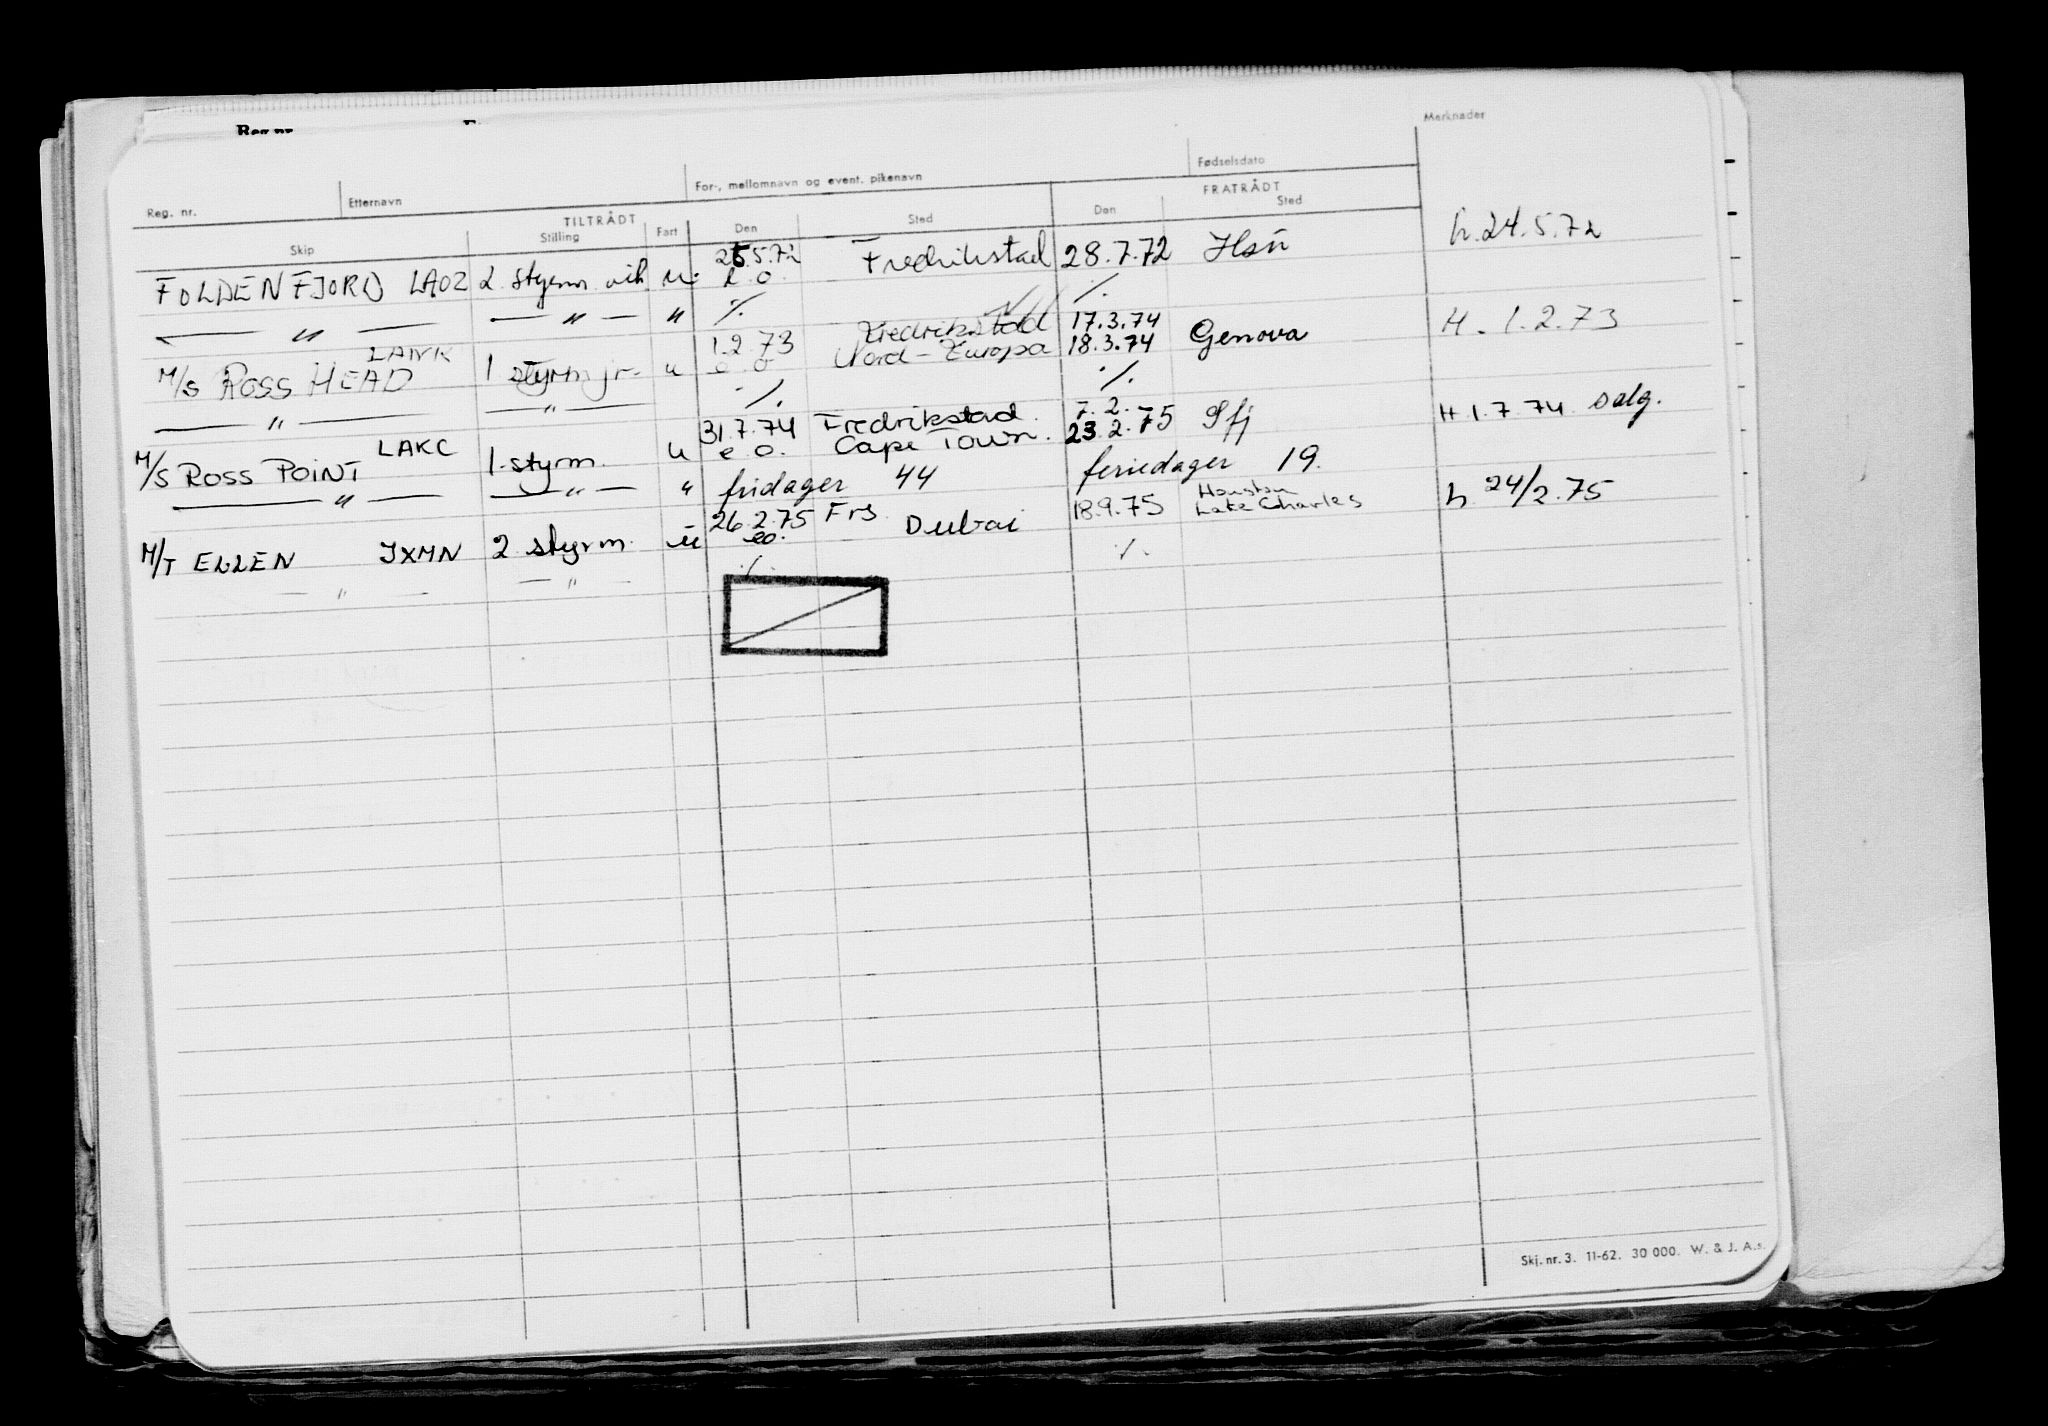 Reg. nr. Etternavn For-, mellomnavn og event. pikenavn Fødselsdato Merknader
TILTRÅDT FRATRÅDT
Skip Stilling Fart Den Sted Den Sted
25.5.72 Fredrikstad 28.7.72 h.24.5.72
FOLDENFJORD LAOZ 2. styrm. vik. u. e.o. ./.
— " — — " — " ./.
1.2.73 Fredrikstad 17.3.74 Genova H. 1.2.73
M/S ROSS HEAD 1 styrm jr. u e o Nord-Europa 18.3.74
— " — — " — ./. ./.
LAKC 31.7.74 Fredrikstad. 7.2.- Sfj H.1.7.74 salg.
M/S ROSS POINT 1. styrm. u e.o. Cape Town. 23.2.75
— " — — " — " fridager 44 feriedager 19.
26.2.75 Frs Dubai 18.9.75 Houston h. 24/2.75
Lake Charles
M/T ELLEN JXMN 2 styrm. u eo. ./.
— " — — " — ./.
Skj. nr. 3. 11-62. 30 000. W. & J. A.s.